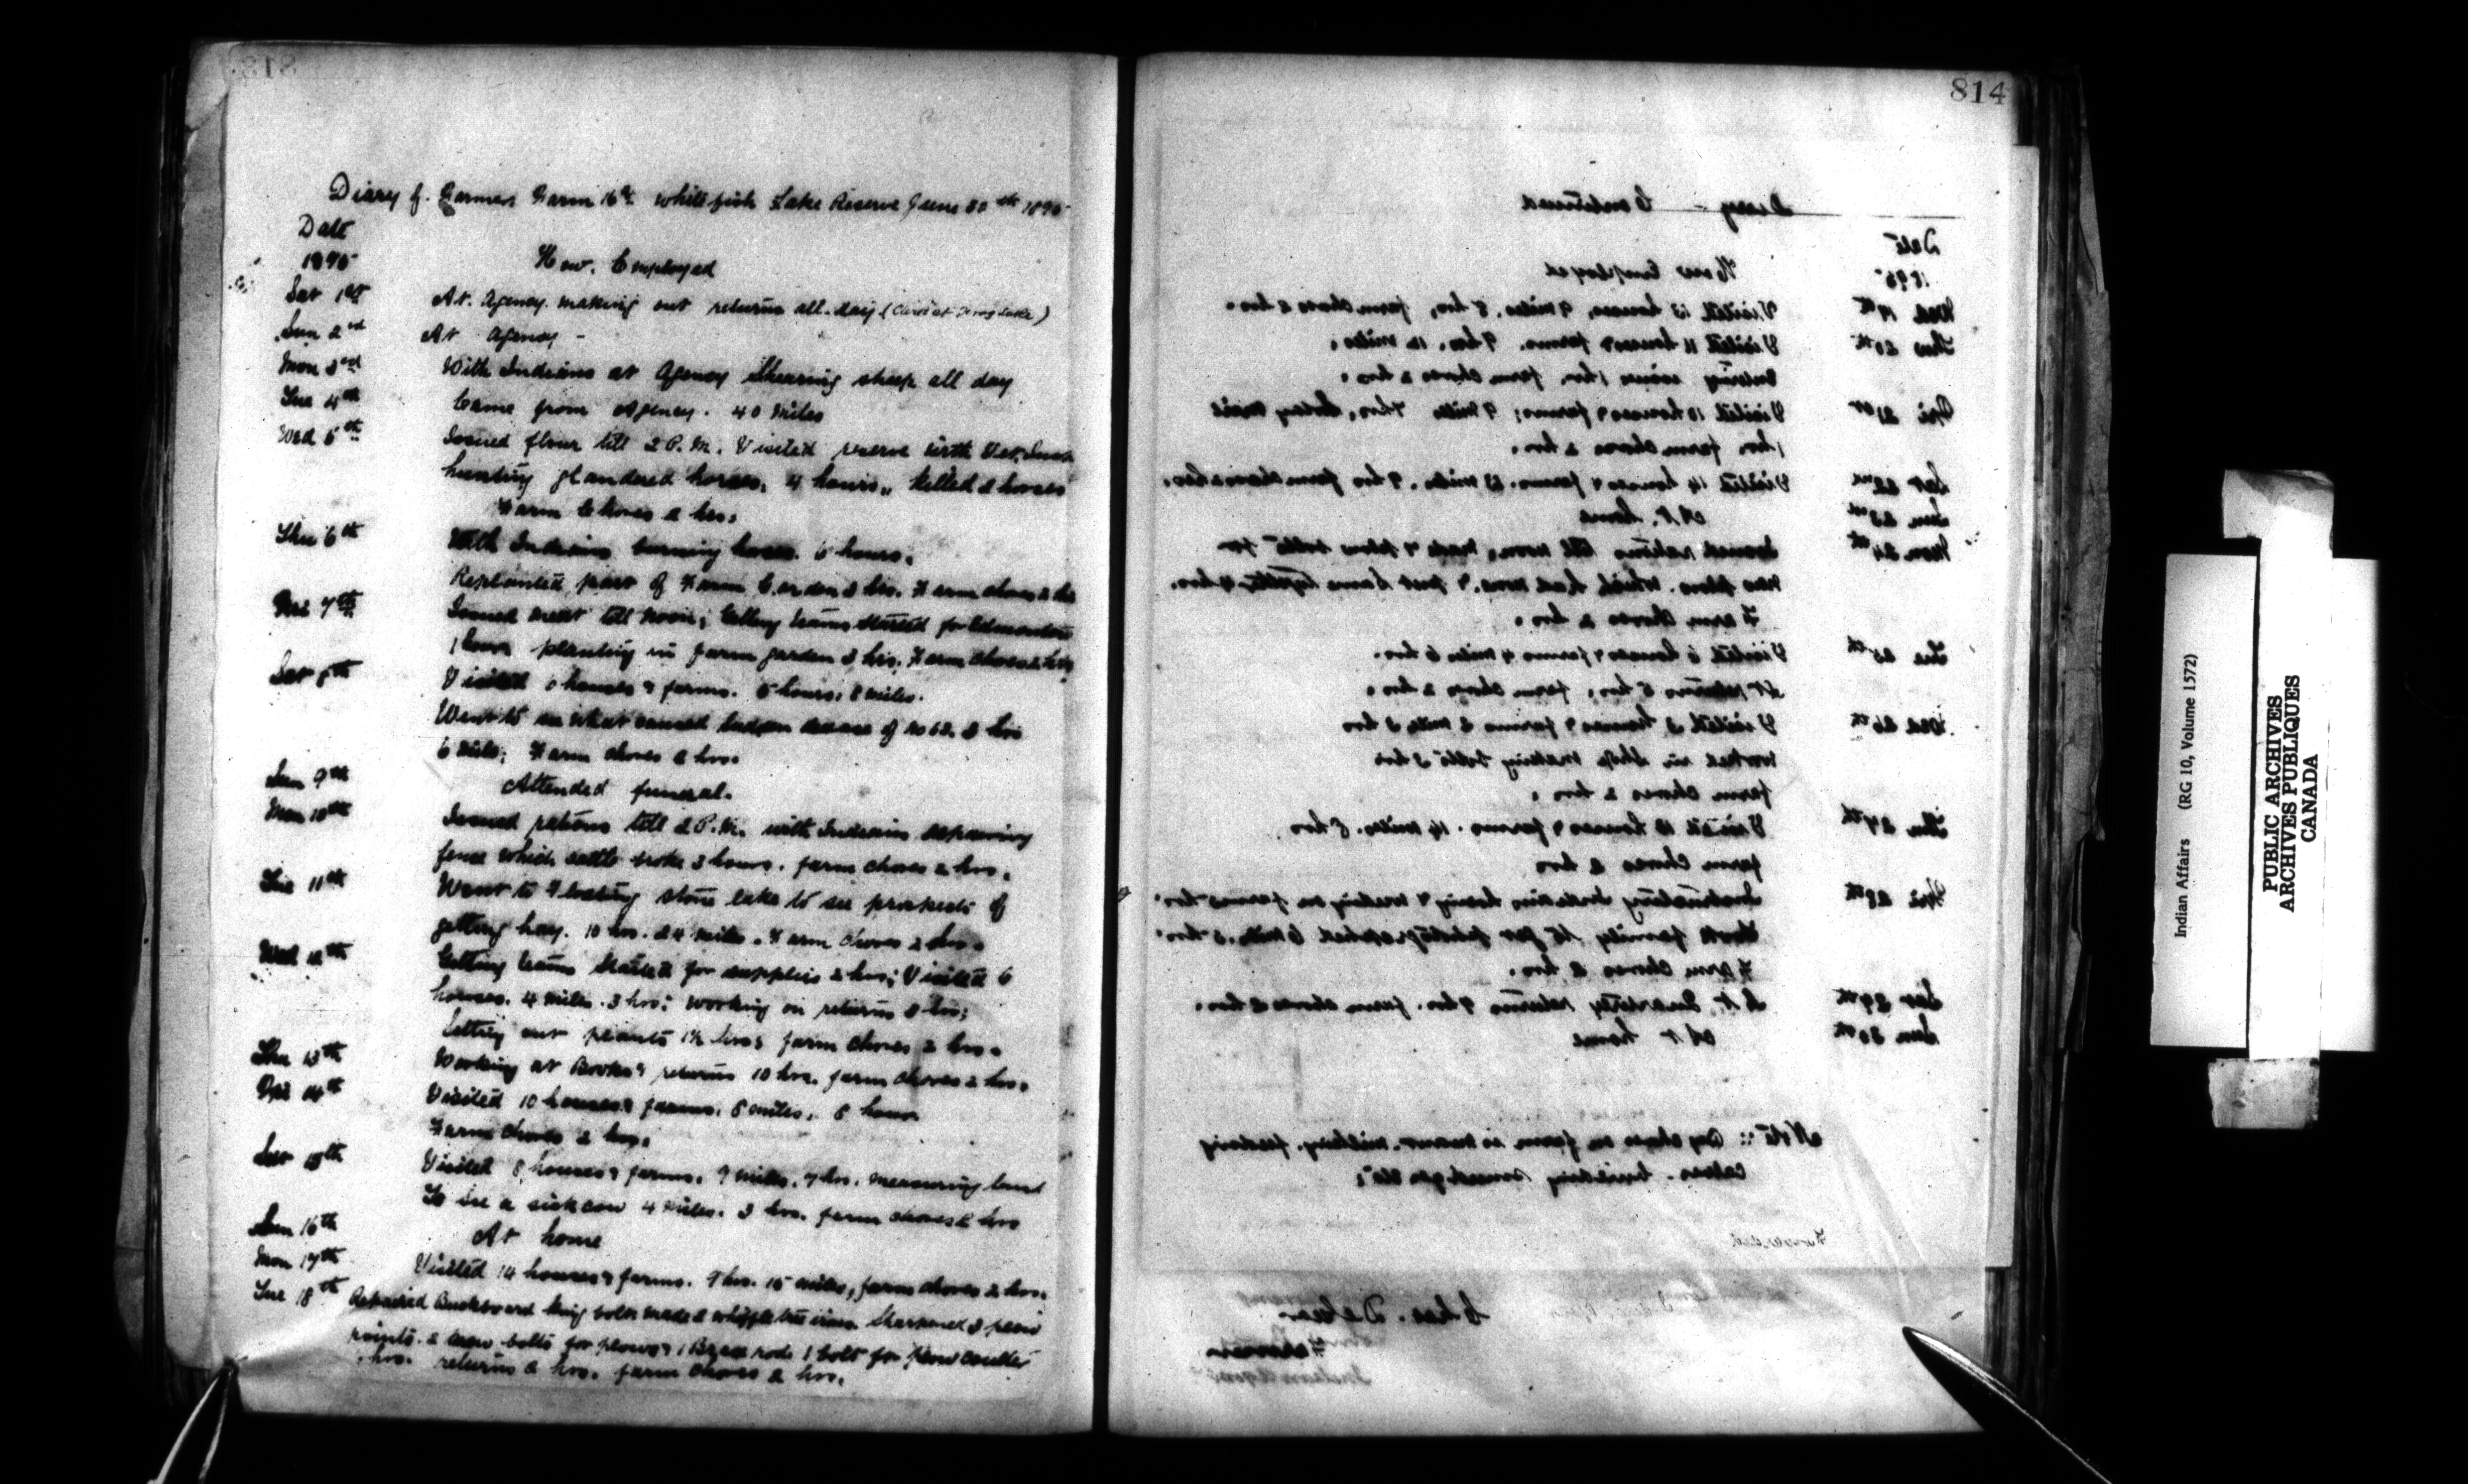 813
Diary of Farmer Farm 16 Whitefish Lake Reserve June 30th 1895
Date
1895 How Employed
Sat 1st At Agency making out returns all day
Sun 2nd At Agency
Mon 3rd With Indians at Agency Shearing sheep all day
Tue 4th Came from Agency. 40 miles
Wed 5th Issued flour till 2 P.M. Visited reserve with
hunting glandered horses. 4 hours, killed 2 horses
Farm Chores 2 hrs.
Thu 6th With Indians burning horses 6 hours.
Replanted part of Farm Garden 3 hrs. Farm chores 2 hrs
Fri 7th Issued meat till noon; Getting teams started for Edmonton
1 hour planting in farm garden 3 hrs. Farm chores 2 hrs
Sat 8th Visited houses & farms. 5 hours. 8 miles.
Went to see what caused death of No 62. 3 hrs
6 miles; Farm chores 2 hrs.
Sun 9th Attended funeral.
Mon 10th Issued rations till 2 P.M. with Indians repairing
fence which cattle broke 3 hours. farm chores 2 hrs.
Tue 11th Went to Floating stone lake to see prospects of
getting hay. 10 hrs. 24 miles. Farm chores 2 hrs.
Wed 12th Getting teams started for supplies 2 hrs; Visited 6
houses. 4 miles. 3 hrs; working on returns 3 hrs;
Setting out plants 1½ hrs; farm chores 2 hrs.
Thu 13th Working at Books & returns 10 hrs. farm chores 2 hrs.
Fri 14th Visited 10 houses & farms. 8 miles. 8 hours
Farm chores 2 hrs.
Sat 15th Visited 8 houses & farms. 9 miles. 7 hrs. measuring land
To see a sick cow 4 miles. 3 hrs. farm chores 2 hrs
Sun 16th At home
Mon 17th Visited 14 houses & farms. 9 hrs. 15 miles, farm chores 2 hrs.
Tue 18th Repaired Buckboard king bolt made 2 whippletree irons Sharpened 3 plow
points. 2 new bolts for plows, 1 Brace rod 1 bolt for plow coulter
hrs. returns 2 hrs. farm chores 2 hrs.
814
Diary - Continued
Date
1895 How Employed
Wed 19th Visited 13 houses, 9 miles. 8 hrs, farm chores 2 hrs.
Thu 20th Visited 11 houses & farms. 9 hrs. 12 miles.
1 hr. farm chores 2 hrs.
Fri 21st Visited 10 houses & farms; 9 miles 7 hrs,
1 hr. farm chores 2 hrs.
Sat 22nd Visited 14 houses & farms. 13 miles. 9 hrs farm chores 2 hrs.
Sun 23rd At home
Mon 24th Issued rations till noon, made 4 plow bolts for
new plow which had none & put same together 4 hrs.
Farm chores 2 hrs.
Tue 25th Visited 6 houses & farms 4 miles 6 hrs.
At returns 5 hrs, farm chores 2 hrs.
Wed 26th Visited 3 houses & farms 3 miles 3 hrs
worked in shop making bolts 3 hrs
farm chores 2 hrs.
Thu 27th Visited 13 houses & farms. 14 miles. 8 hrs
farm chores 2 hrs
Fri 28th Instructing Indians hoeing & weeding on farms hrs.
Took family to get photographed 6 miles. 5 hrs.
Farm chores 2 hrs.
Sat 29th At Quarterly returns 9 hrs. farm chores 2 hrs.
Sun 30th At home
Note:: By chores on farm is meant. milking. feeding
calves. building smudges etc;
Forwarded
Chas. DeGear
Farmer
Indian Agent
Indian Affairs (RG 10, Volume 1572)
PUBLIC ARCHIVES
ARCHIVES PUBLIQUES
CANADA